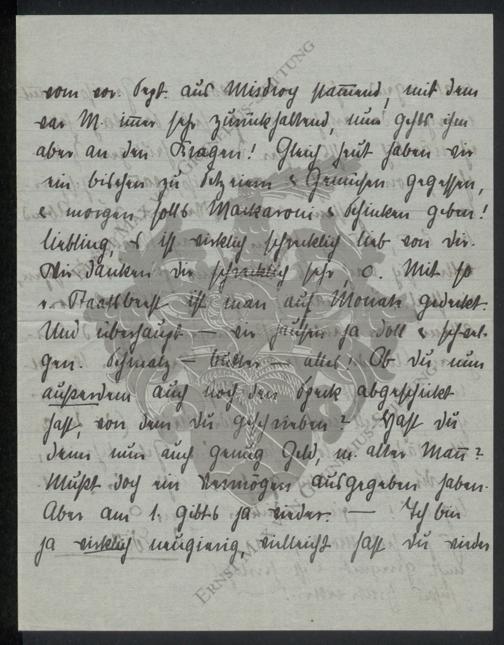 vom vor. Sept. aus Misdroy stam̄end, mit dem
war M. im̄er sehr zurückhaltend, nun gehts ihm
aber an den Kragen! Gleich heut haben wir
ein bischen zu & Gemüchen gegessen,
& morgen solls Mackaroni & Schinken geben!
Liebling, es ist wirklich schrecklich lieb von dir.
Wir danken dir schrecklich sehr o. Mit so
e. ist man auf Monate gedeckt.
Und überhaupt — wir ja voll & schwel-
gen. Schmalz — Butter — alles! Ob du nun
außerdem auch noch den Speck abgeschickt
hast, von dem du geschrieben? Hast du
denn nun auch genug Geld, m. alter Man̄?
Mußt doch ein Vermögen ausgegeben haben.
Aber am 1. gibts ja wieder. — Ich bin
ja wirklich neugierig, vielleicht hast du wieder
ERNST MAX VON GRUNELIUS-STIFTUNG